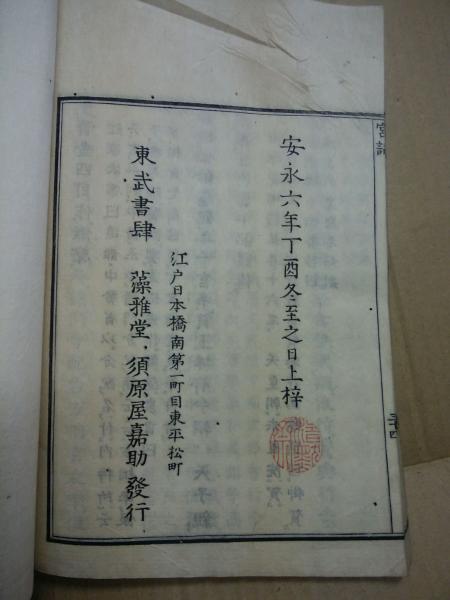 安永六年丁酉冬至之日上梓
江戸日本橋南第一町目東平松町
東武書肆 藻雅堂 須原屋嘉助 發行